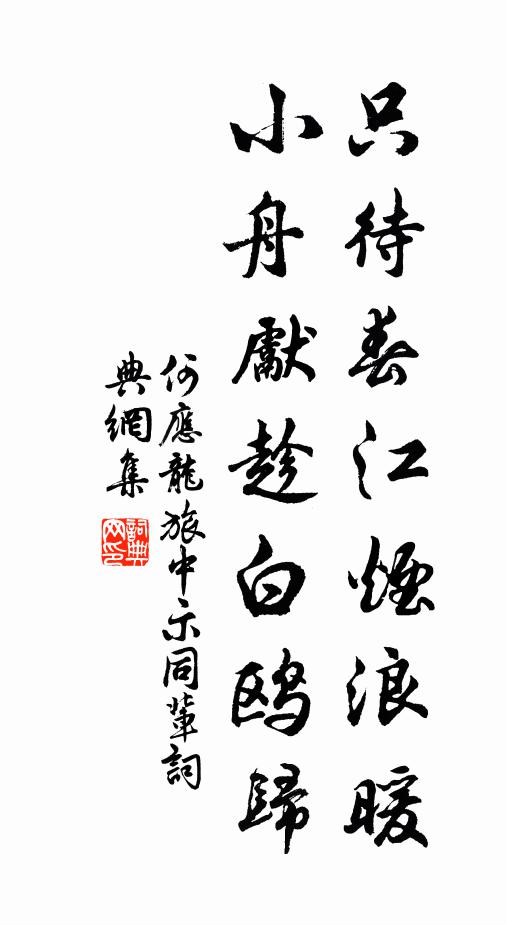 只待春江煙浪暖
小舟獻趁白鷗歸
何應龍旅中示同輩詞
典網集
詞典网印